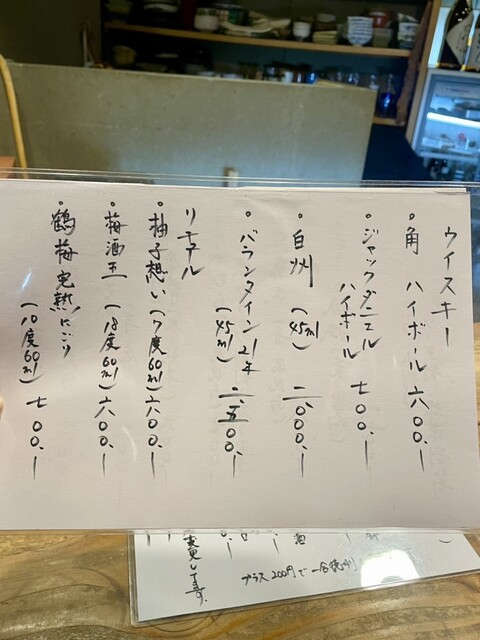 ウイスキー
・角 ハイボール 六〇〇.ー
・ジャックダニエル
ハイボール 七〇〇.ー
・白州 (45ml) 二、〇〇〇.ー
・バランタイン21年
(45ml) 二、五〇〇.ー
リキュール
・柚子想い(7度60ml)六〇〇.ー
・梅酒王 (18度60ml)六〇〇.ー
・鶴梅完熟にごり
(10度60ml) 七〇〇.ー
変更してます。
プラス200円で一合徳利